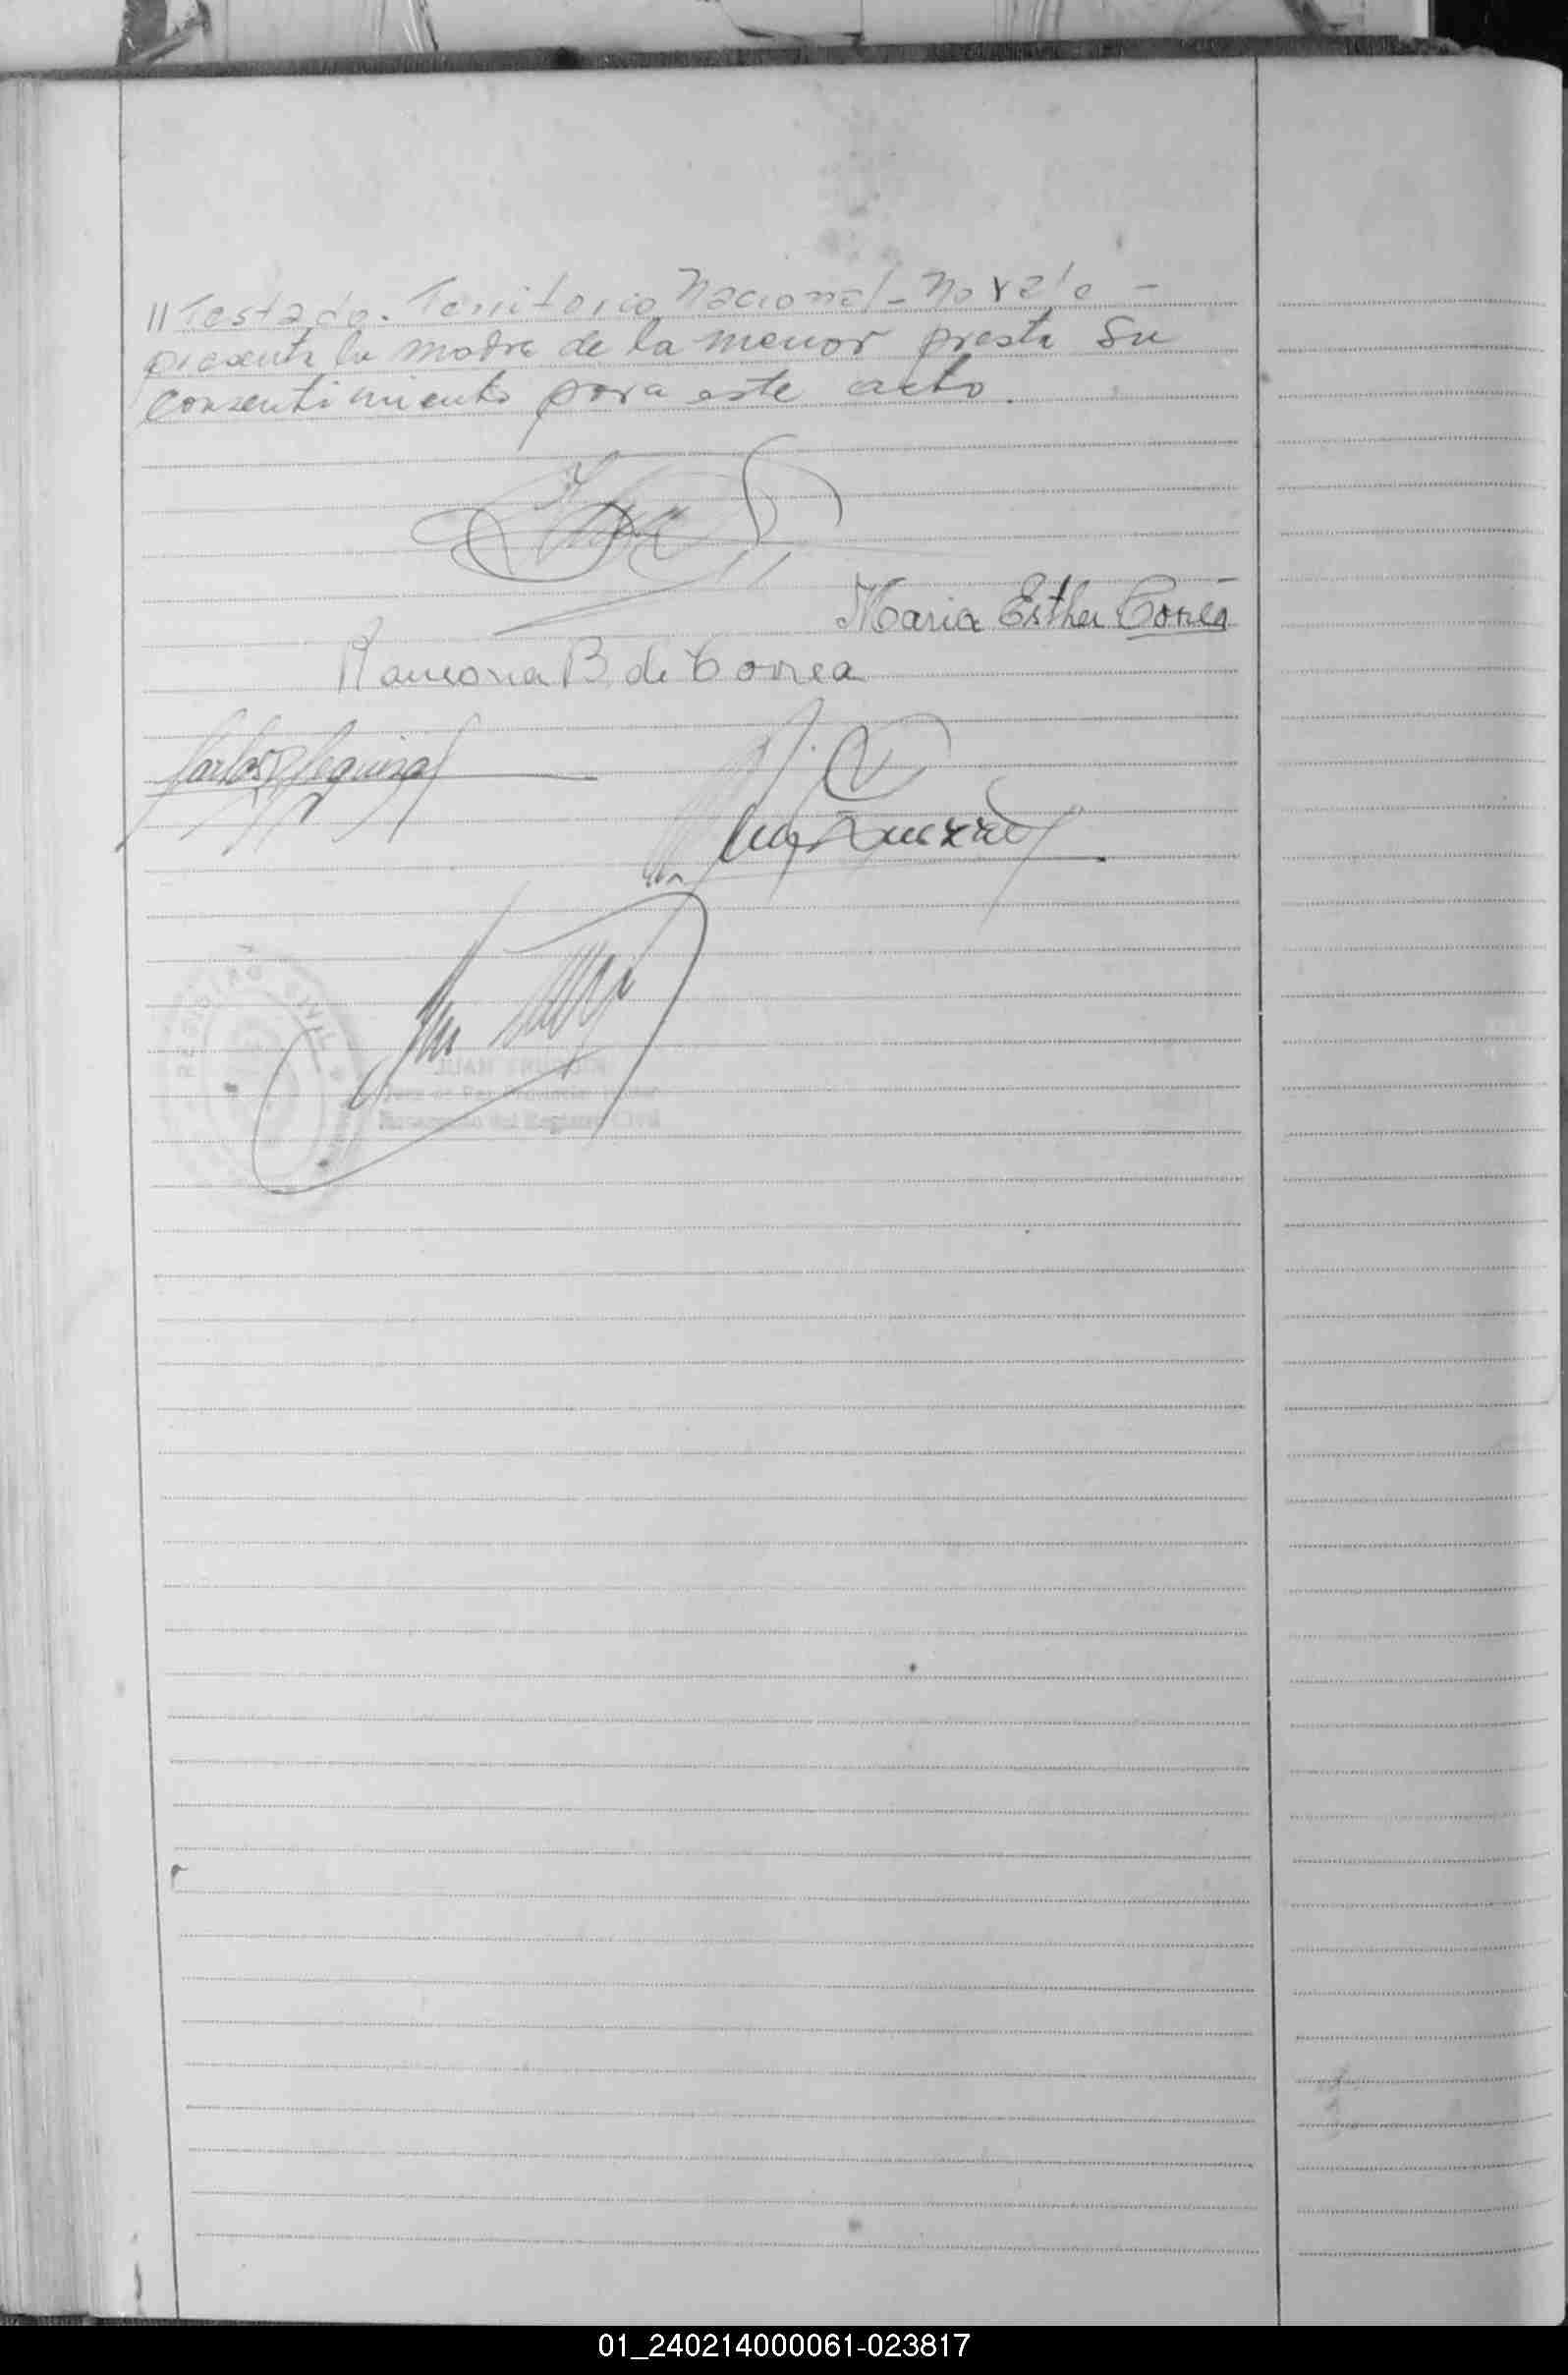 // Testado. Territorio Nacional - No vale -
presente la madre de la menor presta su
consentimiento para este acto.
Maria Esther Correa
Ramona B. de Correa
Carlos
REGISTRO CIVIL
JUAN
Juez de Paz
Encargado del Registro Civil
01_240214000061-023817